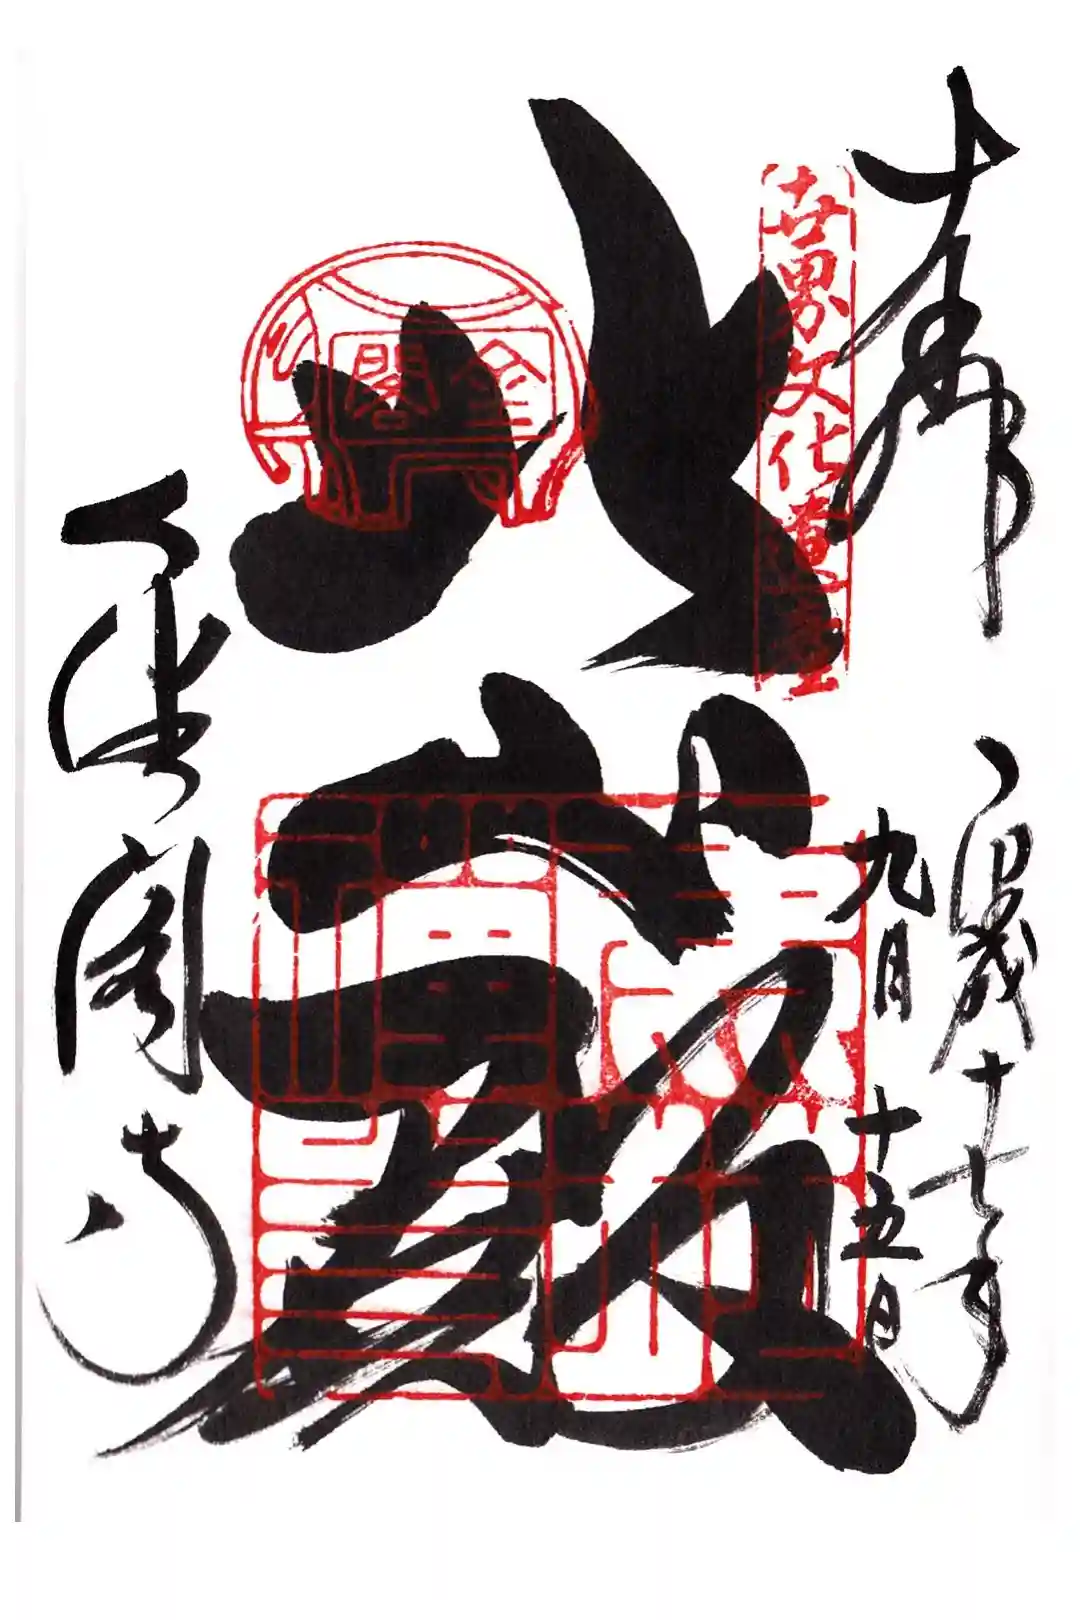 奉拝
平成十七年
九月十五日
世界文化遺産
舎利殿
金閣
金閣寺